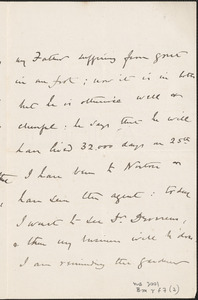 my Father suffering from gout
in one foot; now it is in both
but he is otherwise well &
cheerful: he says that he will
have lived 32.000 days on 25th
I have been to Norton &
have seen the agent: today
I want to see Dr
& then my business will be done
I am reminding the gardener
ms 2001
Box 57 (2)